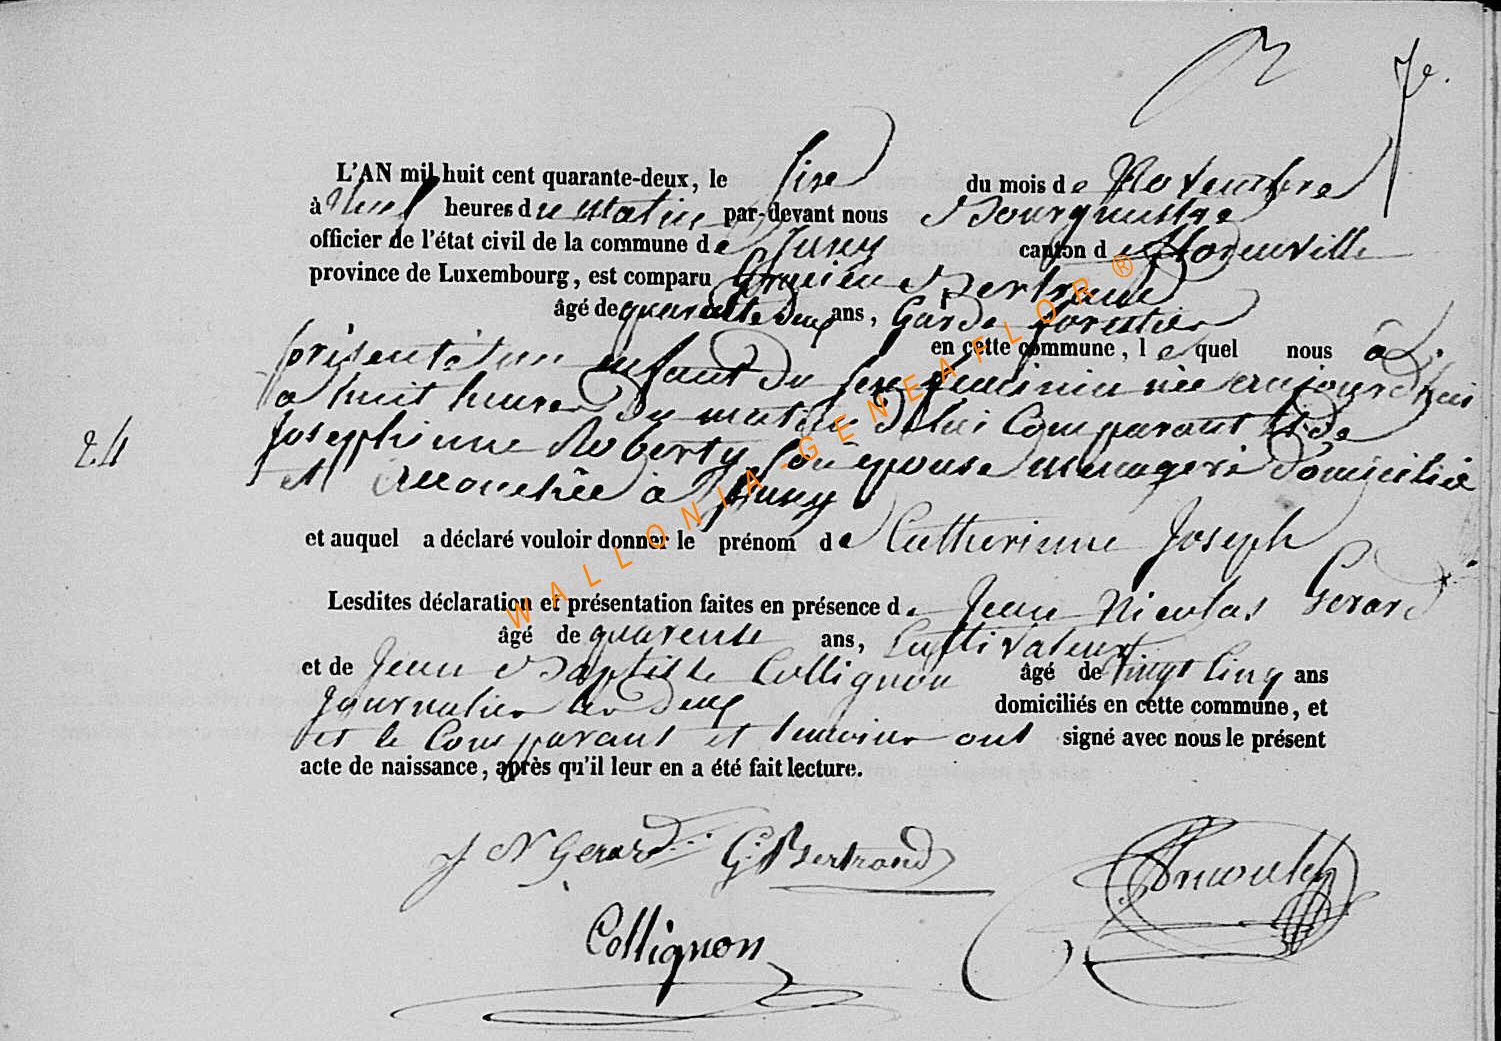 7e.
L'AN mil huit cent quarante-deux, le Sixe du mois de Novembre
à Neuf heures du Matin par-devant nous Bourguestre
officier de l'état civil de la commune de Jusey canton de Florenville
province de Luxembourg, est comparu Gratien Bertrand
âgé de quarante deux ans, Garde forestier
en cette commune, lequel nous à
présenté un enfant du sexe feminin née aujourdhui
a huit heures du matin de lui Comparant et de
Josephinne Roberty son epouse menagere domicilié
et accouchée à Jusey
24
et auquel a déclaré vouloir donner le prénom de Catherinne Joseph
Lesdites déclaration et présentation faites en présence de Jean Nicolas Gerard
âgé de quarente ans, Cultivateur
et de Jean Baptiste Collignon âgé de vingt Cinq ans
Journalier les deux domiciliés en cette commune, et
et le Comparant et temoins ont signé avec nous le présent
acte de naissance, après qu'il leur en a été fait lecture.
J N Gerard G. Bertrand
Collignon
WALLONIA-GENEAFLOR®